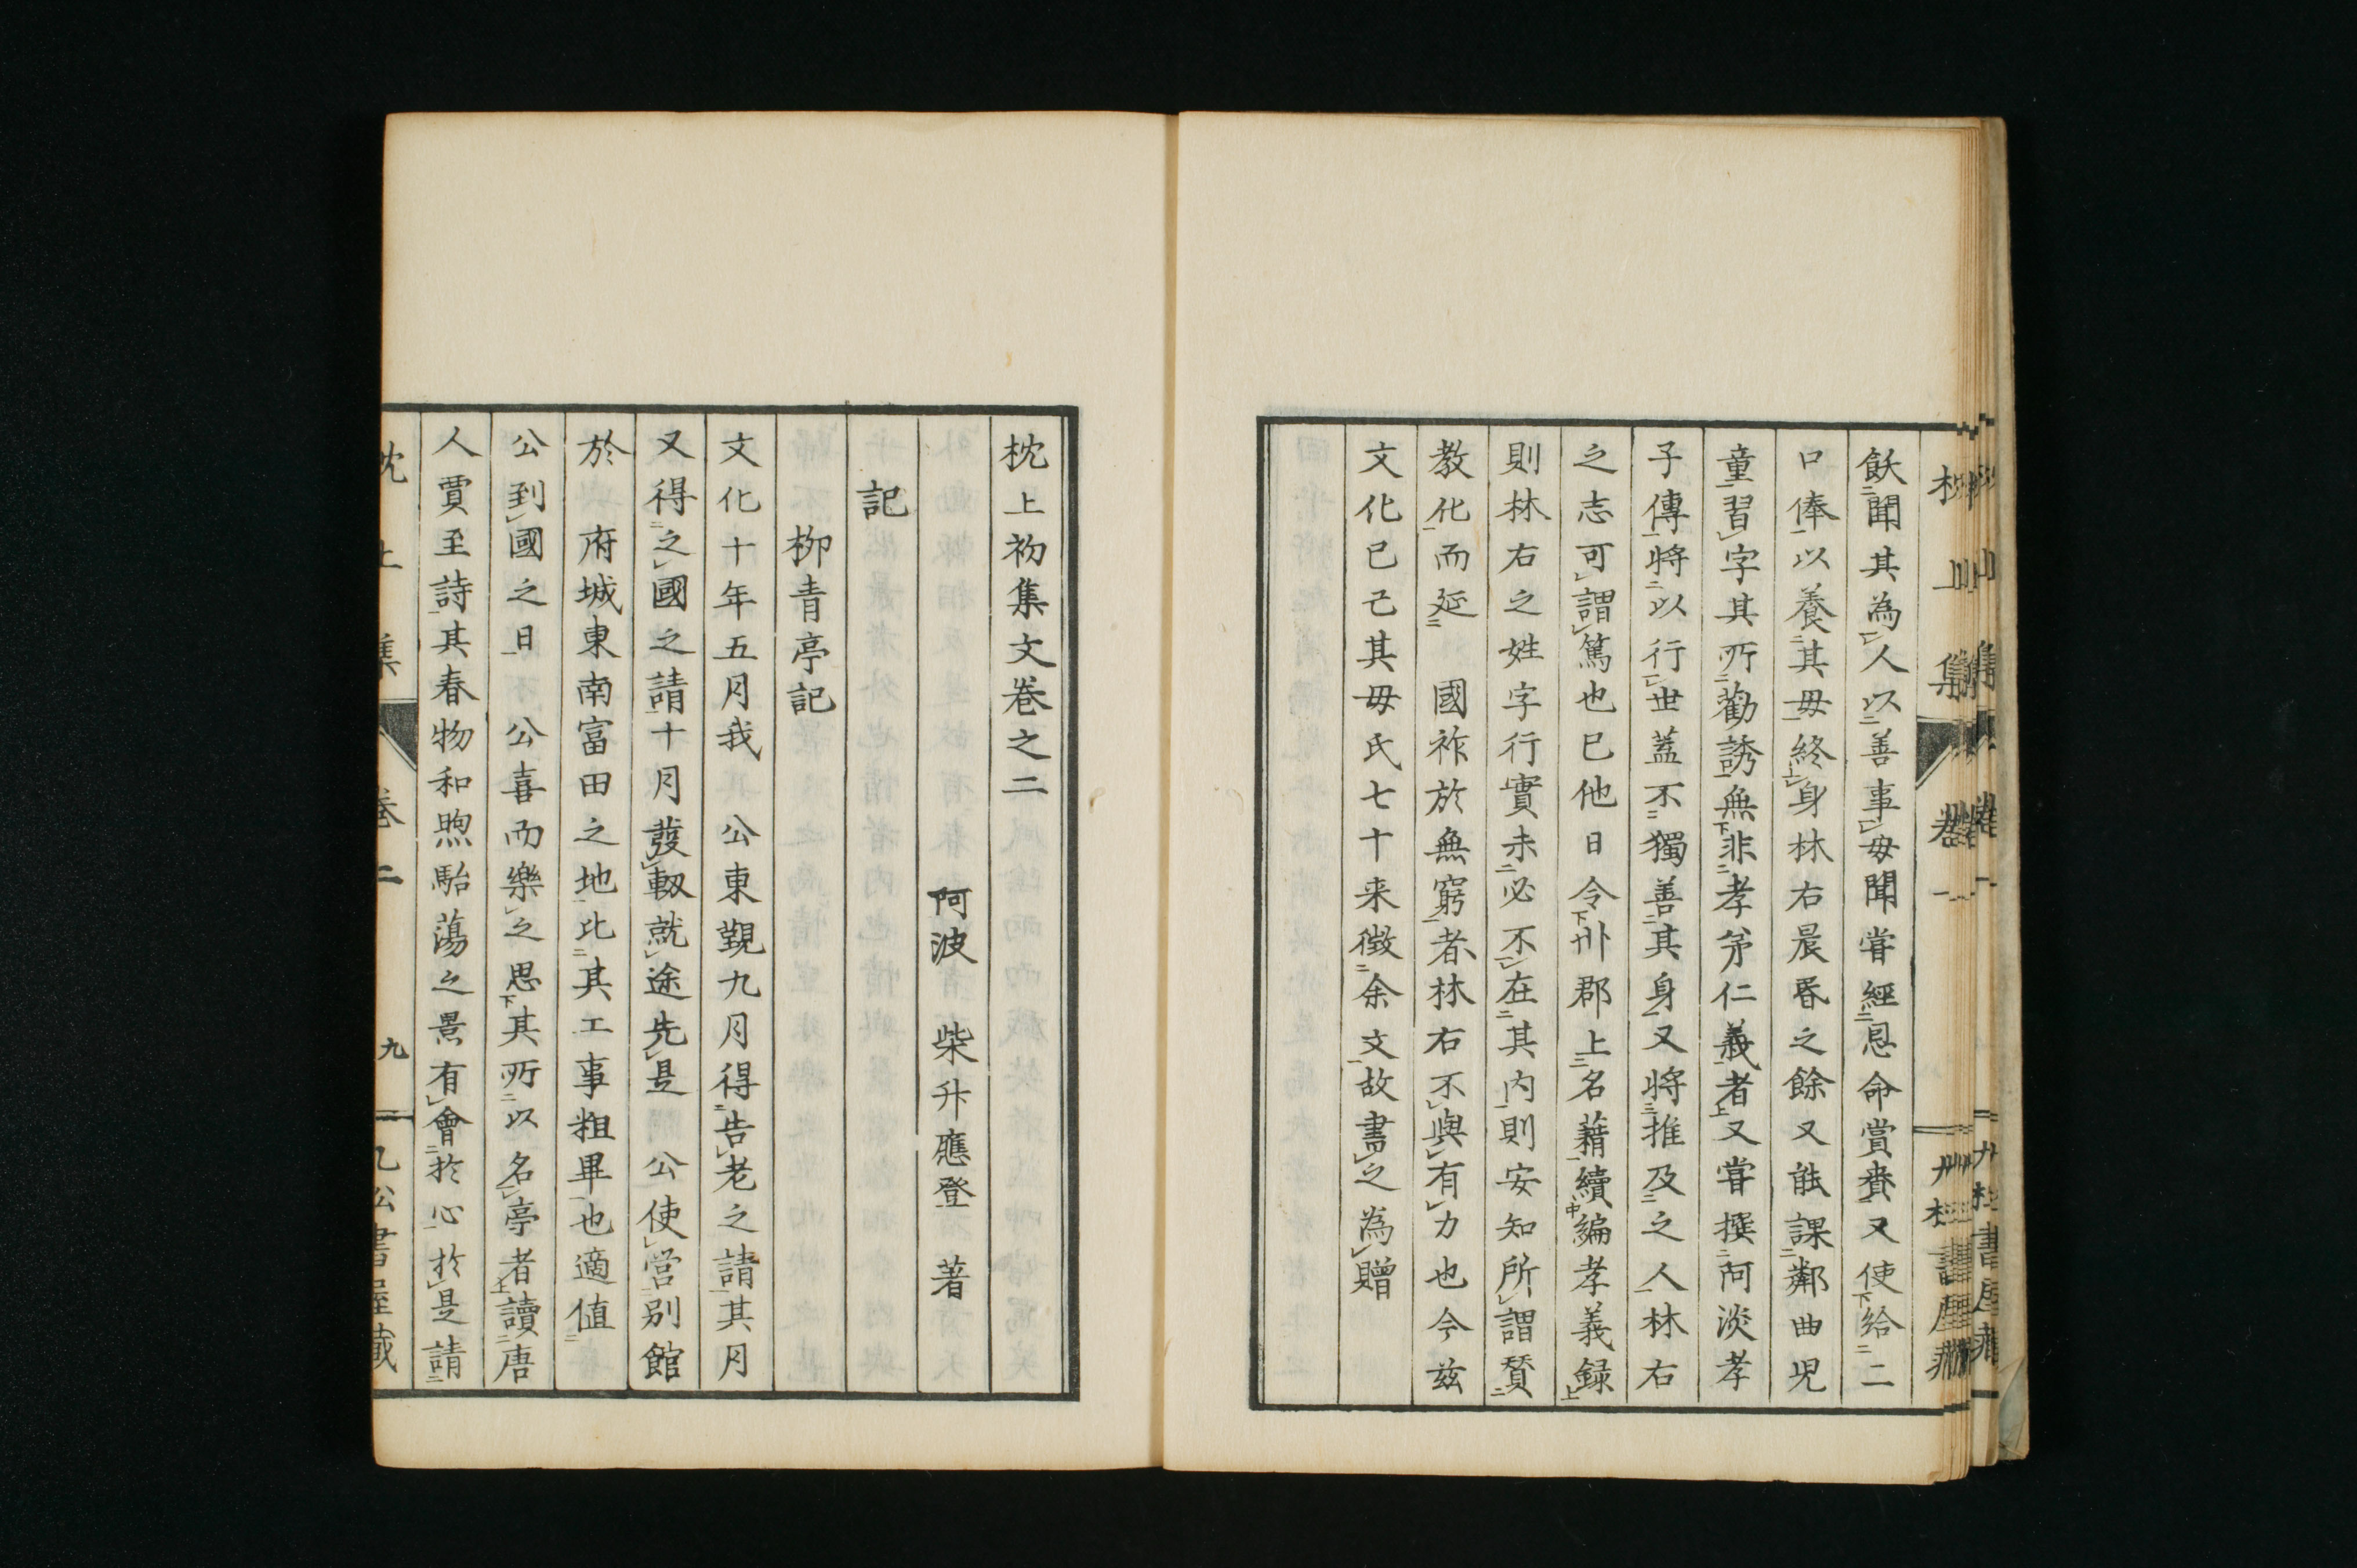 飫聞其為人以善事母聞甞經恩命賞賚又使給二
口俸以養其母終身林右晨昏之餘又能課鄰曲児
童習字其所勸誘無非孝弟仁義者又甞撰阿淡孝
子傳将以行世蓋不獨善其身又将推及之人林右
之志可謂篤也已他日令州郡上名藉續編孝義録
則林右之姓字行實未必不在其内則安知所謂賛
教化而延　國祚於無窮者林右不與有力也今兹
文化己巳其母氏七十来徴余文故書之為贈
枕上初集文巻之二
阿波　柴升應登　著
記
柳青亭記
文化十年五月我　公東覲九月得告老之請其月
又得之國之請十月發軔就途先是　公使営別館
於　府城東南富田之地比其工事粗畢也適值
公到國之日　公喜而樂之思其所以名亭者讀唐
人賈至詩其春物和煦駘蕩之景有會於心於是請
枕上集　巻二　九